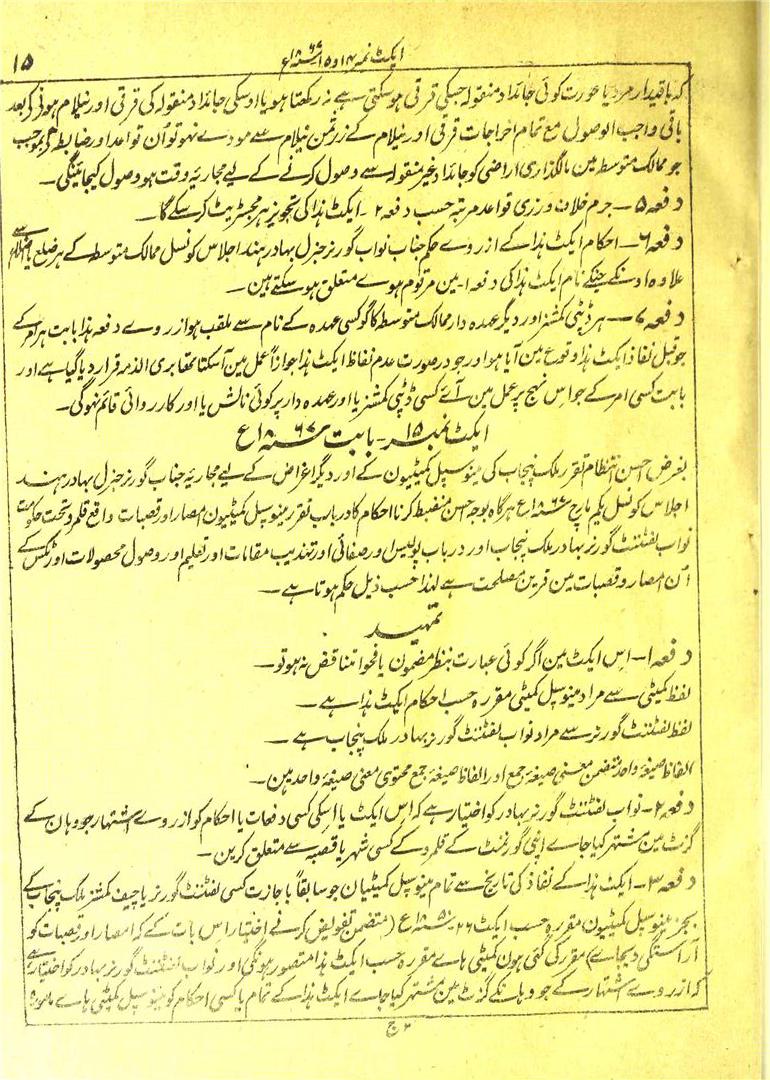 ایکٹ نمبر ۱۴ و ۱۵ ۱۸۶۷ع ۱۵
کہ باقیدار مرد یا عورت کوئی جائداد منقولہ جسکی قرقی ہوسکتی ہے نہ رکھتا ہو یا اوسکی جائداد منقولہ کی قرقی اور نیلام ہونی کے بعد
باقی واجب الوصول مع تمام اخراجات قرقی اور نیلام کے زرثمن نیلام سے مودے نہو تو اُن قواعد اور ضابطہ کے بموجب
جو ممالک متوسط مین مالگذاری اراضی کو جائداد غیر منقولہ سے وصول کرنے کے لیے مجاریہ وقت ہو وصول کیجائیگی۔
دفعہ ۵ — جرم خلاف ورزی قواعد مرتبہ حسب دفعہ ۲۔ ایکٹ ہذا کی تجویز ہر مجسٹریٹ کرسکے گا۔
دفعہ ۶ — احکام ایکٹ ہذا کے ازروے حکم جناب نواب گورنر جنرل بہادر ہند اجلاس کونسل ممالک متوسط کے ہر ضلع یا اضلاع سے
علاوہ اونکے جنکے نام ایکٹ ہذا کی دفعہ ۱۔ مین مرقوم ہوے متعلق ہوسکتے ہین۔
دفعہ ۷ — ہر ڈپٹی کمشنر اور دیگر عہدہ دار ممالک متوسط کا گو کسی عہدہ کے نام سے ملقب ہو ازروے دفعہ ہذا بابت ہر امر کے
جو قبل نفاذ ایکٹ ہذا وقوع مین آیا ہو اور جو درصورت عدم نفاذ ایکٹ ہذا جوازاً عمل مین آسکتا تھا بری الذمہ قرار دیا گیا ہے اور
بابت کسی امر کے جو اس نہج پر عمل مین آے کسی ڈپٹی کمشنر یا اور عہدہ دار پر کوئی نالش یا اور کارروائی قائم نہوگی۔
ایکٹ نمبر ۱۵ — بابت ۱۸۶۷ع
بغرض احسن انتظام تقرر ملک پنجاب کی مینوسپل کمیٹیون کے اور دیگر اغراض کے لیے مجاریہ جناب گورنر جنرل بہادر ہند
اجلاس کونسل یکم مارچ ۱۸۶۷ع ہرگاہ بوجہ احسن منضبط کرنا احکام کا درباب تقرر مینوسپل کمیٹیون امصار اور قصبات واقع قلمرو تحت حکومت
نواب لفٹنٹ گورنر بہادر ملک پنجاب اور درباب پولیس اور صفائی اور تہذیب مقامات اور تعلیم اور وصول محصولات اور ٹکس کے
اُن امصار و قصبات مین قرین مصلحت ہے لہذا حسب ذیل حکم ہوتا ہے۔
تمہید
دفعہ ۱ — اِس ایکٹ مین اگر کوئی عبارت بنظر مضمون یا فحوا تناقض نہو تو۔
لفظ کمیٹی سے مراد مینوسپل کمیٹی مقررہ حسب احکام ایکٹ ہذا ہے۔
لفظ لفٹنٹ گورنر سے مراد نواب لفٹنٹ گورنر بہادر ملک پنجاب ہے۔
الفاظ صیغہ واحد متضمن معنی صیغہ جمع اور الفاظ صیغہ جمع محتوی معنی صیغہ واحد ہین۔
دفعہ ۲ — نواب لفٹنٹ گورنر بہادر کو اختیار ہے کہ اِس ایکٹ یا اسکی کسی دفعات یا احکام کو ازروے اشتہار جو وہان کے
گزٹ مین مشتہر کیا جاے اپنی گورنمنٹ کے قلمرو کے کسی شہر یا قصبہ سے متعلق کرین۔
دفعہ ۳ — ایکٹ ہذا کے نفاذ کی تاریخ سے تمام مینوسپل کمیٹیان جو سابقاً باجازت کسی لفٹنٹ گورنر یا چیف کمشنر ملک پنجاب کے
بجز مینوسپل کمیٹیون مقررہ حسب ایکٹ ۲۶ ۱۸۵۰ع (متضمن تفویض کرنے اختیار اس بات کے کہ امصار اور قصبات کو
آراستگی دیجاے) مقرر کی گئی ہون کمیٹی ہاے مقررہ حسب ایکٹ ہذا متصور ہونگی اور نواب لفٹنٹ گورنر بہادر کو اختیار ہے
کہ ازروے اشتہار کے جو وہانکے گزٹ مین مشتہر کیا جاے ایکٹ ہذا کے تمام یا کسی احکام کو مینوسپل کمیٹی ہاے
۲ ج